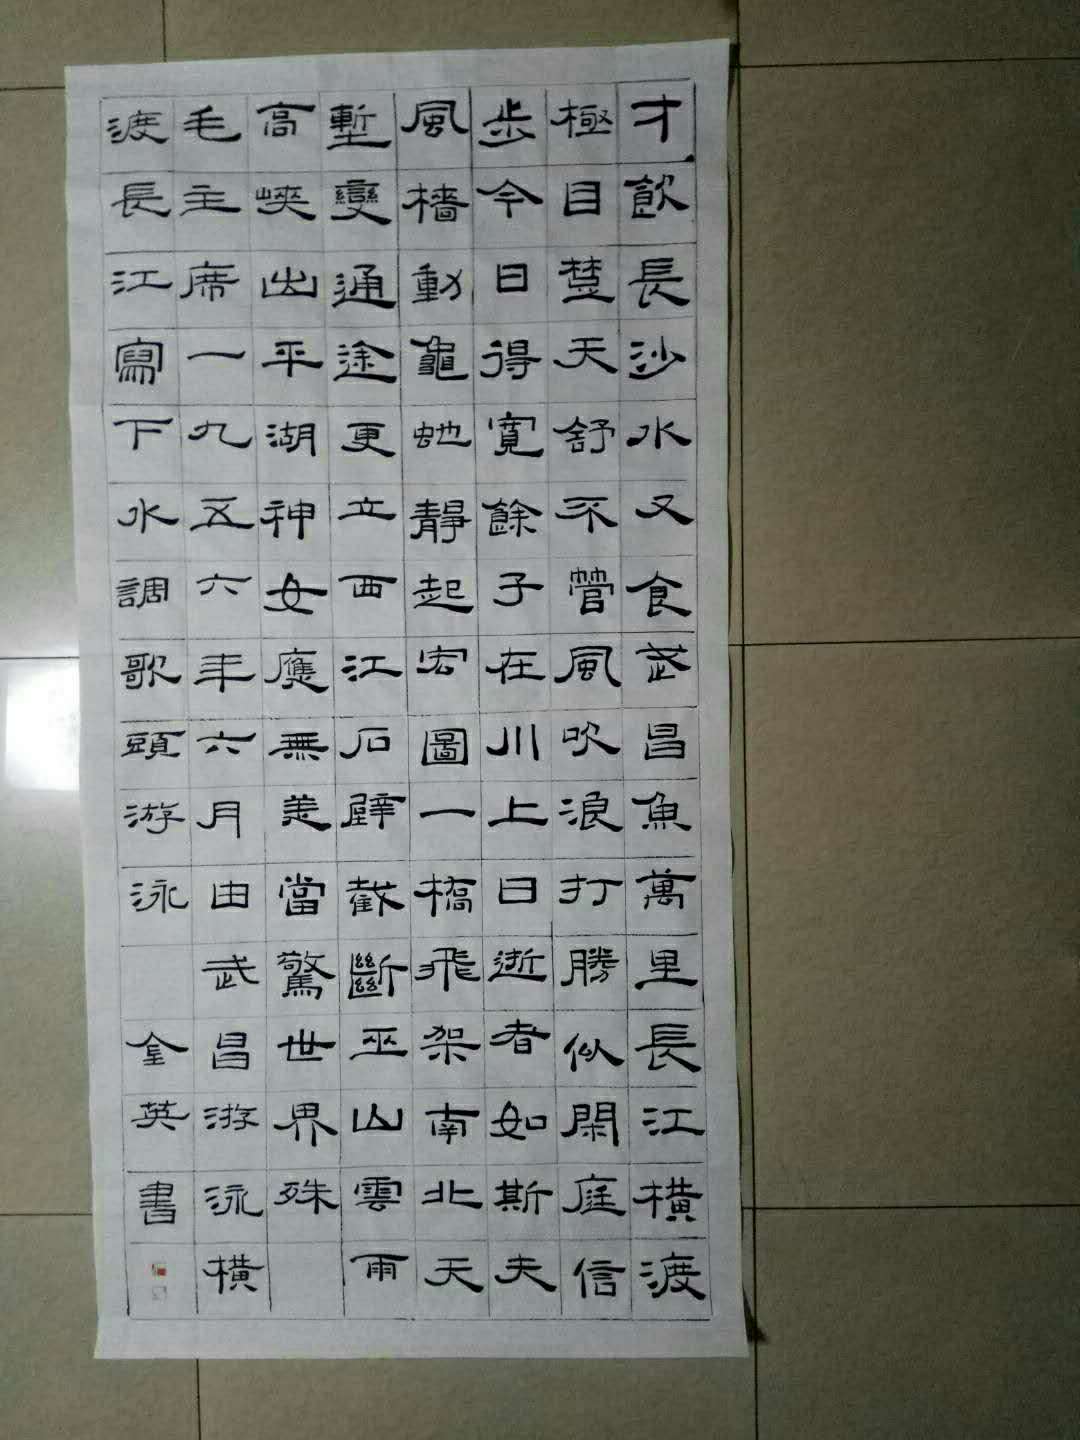 才飲長沙水又食武昌魚萬里長江橫渡
極目楚天舒不管風吹浪打勝似閑庭信
步今日得寬餘子在川上曰逝者如斯夫
風檣動龜虵靜起宏圖一橋飛架南北天
塹變通途更立西江石壁截斷巫山雲雨
高峽出平湖神女應無恙當驚世界殊
毛主席一九五六年六月由武昌游泳橫
渡長江寫下水調歌頭游泳 金英書